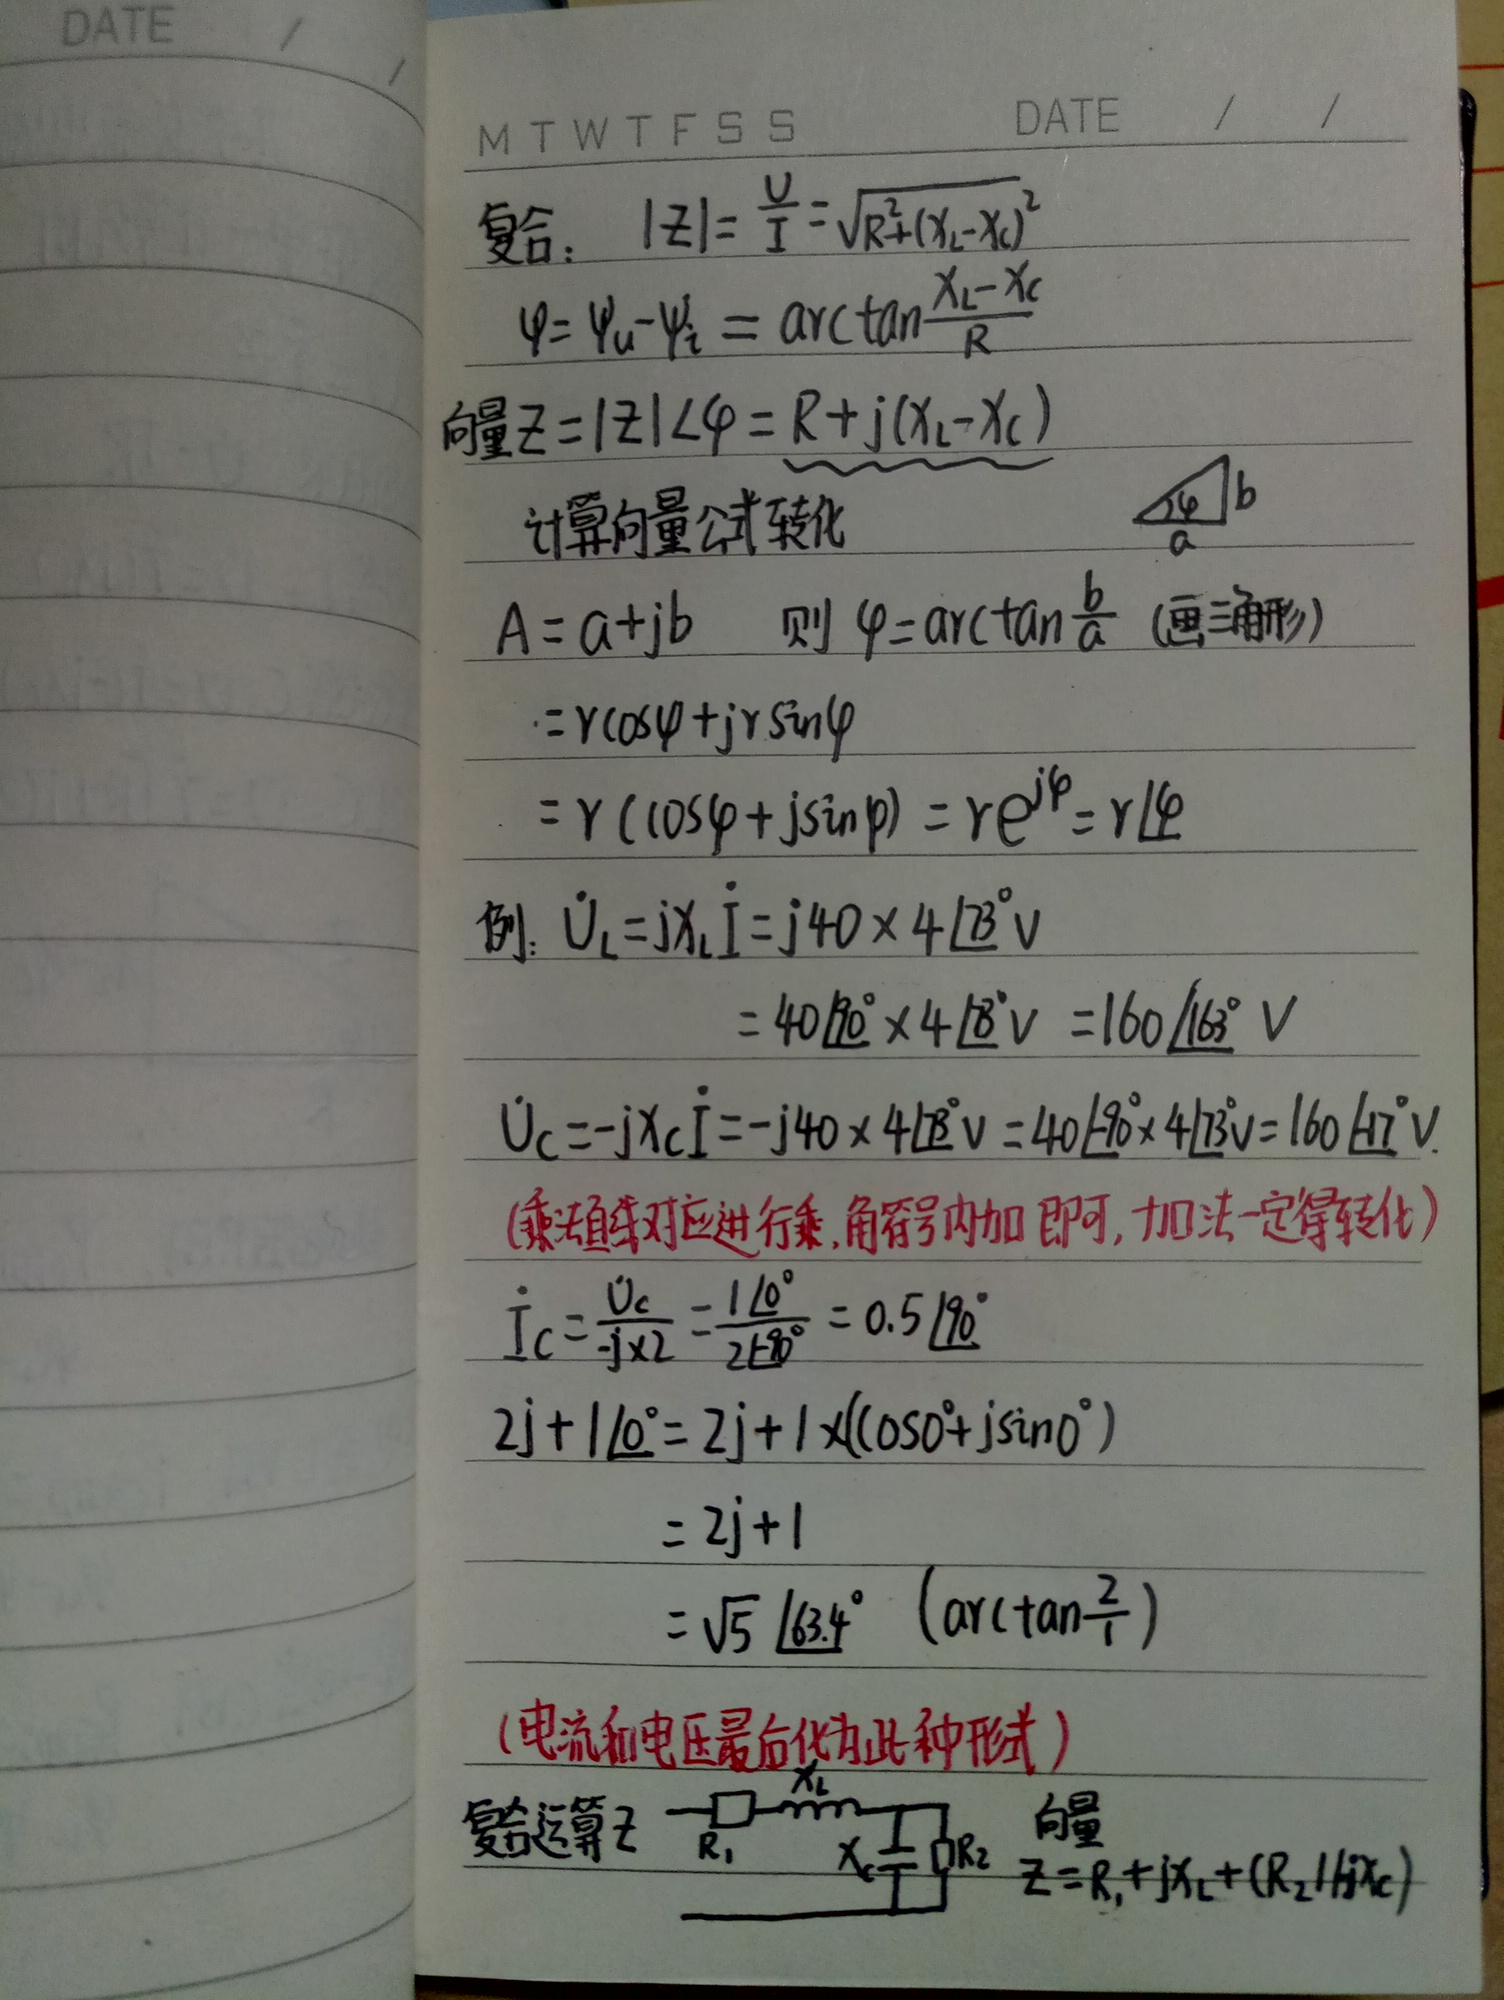 DATE / /
M T W T F S S DATE / /
复合: |Z|=U/I=√R²+(X_L-X_C)²
φ=ψu-ψi=arctan (X_L-X_C)/R
向量Z=|Z|∠φ=R+j(X_L-X_C)
计算向量公式转化
φ b
a
A=a+jb 则 φ=arctan b/a (画三角形)
=rcosφ+jrsinφ
=r(cosφ+jsinφ)=re^jφ=r∠φ
例: U̇_L=jX_L İ=j40×4∠73°V
=40∠90°×4∠73°V =160∠163° V
U̇_C=-jX_C İ=-j40×4∠73°V=40∠-90°×4∠73°V=160∠-17°V.
(乘法直线对应进行乘,角符号内加即可,加法一定得转化)
İ_C=U̇c/-j×2=1∠0°/2∠-90°=0.5∠90°
2j+1∠0°=2j+1×(cos0°+jsin0°)
=2j+1
=√5∠63.4° (arctan 2/1)
(电流和电压最后化为此种形式)
复合运算Z R₁ X_L X_C R₂ 向量
Z=R₁+jX_L+(R₂//-jX_C)